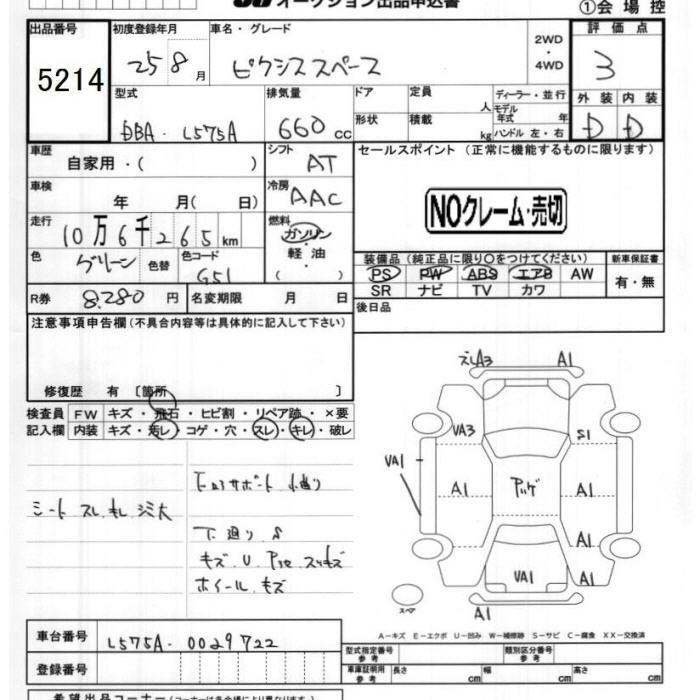 オークション出品申込書
①会場控
出品番号 初度登録年月 車名・グレード 評価点
5214 25 8月 ピクシススペース 2WD・4WD 3
型式 排気量 ドア 定員 人 ディーラー・並行 外装 内装
DBA-L575A 660cc 形状 積載 kg モデル年式 年 ハンドル 左・右 D D
車歴 自家用・( ) シフト AT セールスポイント (正常に機能するものに限ります)
車検 年 月( 日) 冷房 AAC
NOクレーム・売切
走行 10万6千265km 燃料 ガソリン・軽油・( )
色 グリーン 色替 色コード G51
装備品 (純正品に限り○をつけてください) 新車保証書
PS PW ABS エアB AW 有・無
SR ナビ TV カワ
R券 8.280円 名変期限 月 日
後日品
注意事項申告欄 (不具合内容等は具体的に記入して下さい)
修復歴 有 〔箇所 〕
検査員 FW キズ・飛石・ヒビ割・リペア跡・×要
記入欄 内装 キズ・汚レ・コゲ・穴・スレ・キレ・破レ
A1
VA3 S1
VA1
A1 A1
A1
VA1 A1
スペア
A1
下廻り S
ホイール キズ
A-キズ E-エクボ U-凹み W-補修跡 S-サビ C-腐食 XX-交換済
車台番号 L575A-0029722
登録番号
型式指定番号 参考 類別区分番号 参考
車庫証明用 参考 長さ cm 幅 cm 高さ cm
希望出品コーナー